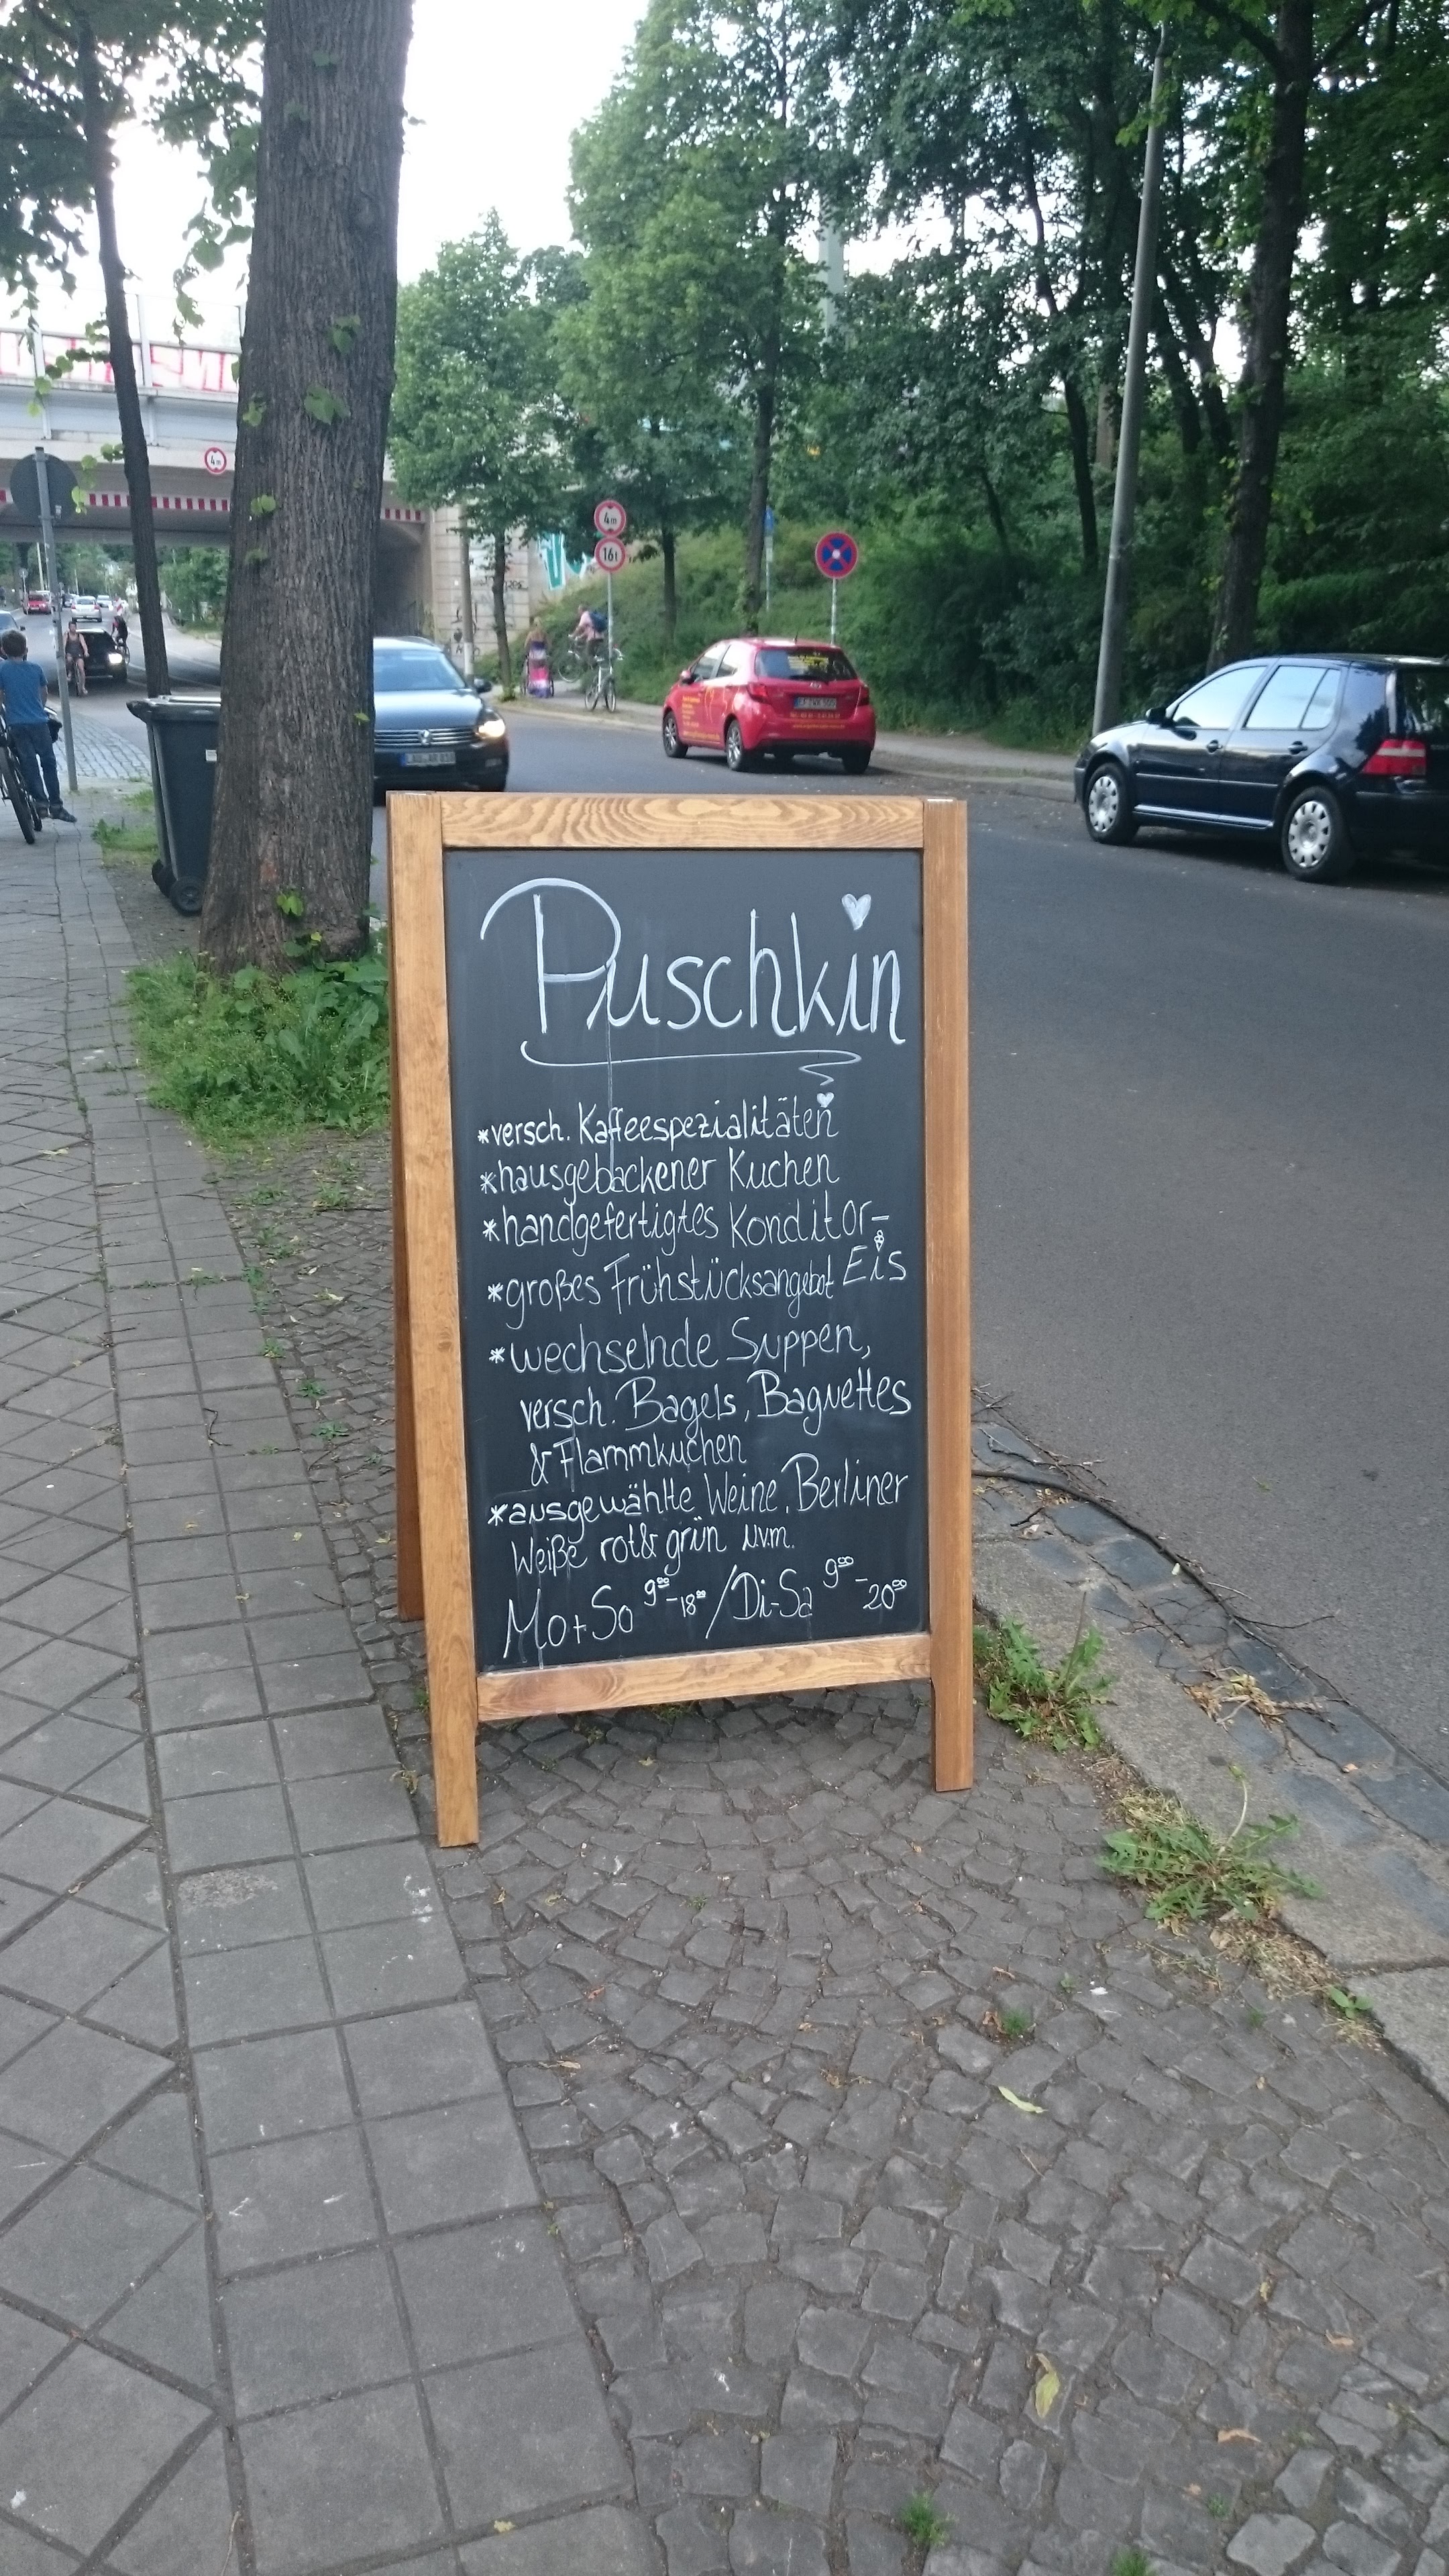 4m
4m
16t
Puschkin
*versch. Kaffeespezialitäten
*hausgebackener Kuchen
*handgefertigtes Konditor-
Eis
*großes Frühstücksangebot
*wechselnde Suppen,
versch. Bagels, Baguettes
& Flammkuchen
*ausgewählte Weine, Berliner
Weiße rot & grün uvm.
Mo + So 9⁰⁰-18⁰⁰ / Di-Sa 9⁰⁰-20⁰⁰